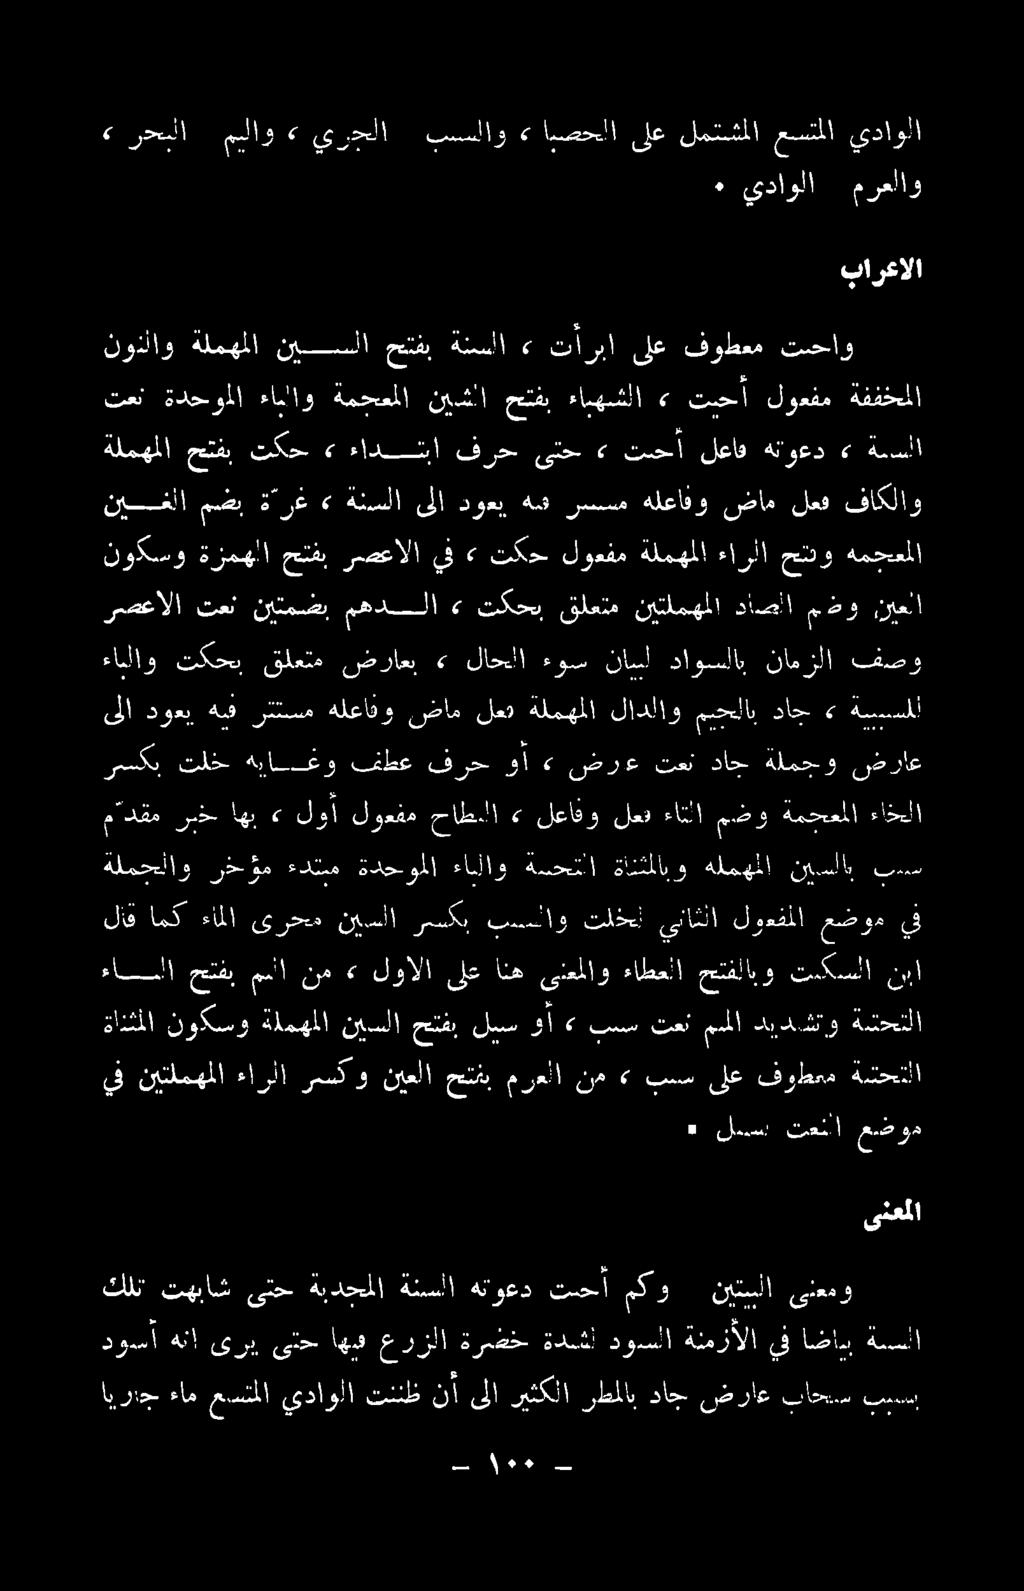 الوادي المتسع المشتمل على الحصبا ، والسيب الجري ، واليم البحر ،
والعرم الوادي ٠
الاعراب
واحيت معطوف على ابرأت ، السنة بفتح السين المهملة والنون
المخففة مفعول أحيت ، الشهباء بفتح الشين المعجمة والباء الموحدة نعت
السنة ، دعوته فاعل أحيت ، حتى حرف ابتداء ، حكت بفتح المهملة
والكاف فعل ماض وفاعله مستتر فيه يعود الى السنة ، غرّة بضم الغين
المعجمه وفتح الراء المهملة مفعول حكت ، في الاعصر بفتح الهمزة وسكون
العين وضم الصاد المهملتين متعلق بحكت ، الدهم بضمتين نعت الاعصر
وصف الزمان بالسواد لبيان سوء الحال ، بعارض متعلق بحكت والباء
للسببية ، جاد بالجيم والدال المهملة فعل ماض وفاعله مستتر فيه يعود الى
عارض وجملة جاد نعت عارض ، أو حرف عطف وغايه خلت بكسر
الخاء المعجمة وضم التاء فعل وفاعل ، البطاح مفعول أول ، بها خبر مقدّم
سيب بالسين المهمله وبالمثناة التحتية والباء الموحدة مبتدء مؤخر والجملة
في موضع المفعول الثاني لخلت والسيب بكسر السين مجرى الماء كما قال
ابن السكيت وبالفتح العطاء والمعنى هنا على الاول ، من اليم بفتح الياء
التحتية وتشديد الميم نعت سيب ، أو سيل بفتح السين المهملة وسكون المثناة
التحتية معطوف على سيب ، من العرم بفتح العين وكسر الراء المهملتين في
موضع النعت لسيل ٠
المعنى
ومعنى البيتين وكم أحيت دعوته السنة المجدبة حتى شابهت تلك
السنة بياضا في الأزمنة السود لشدة خضرة الزرع فيها حتى يرى انه أسود
بسبب سحاب عارض جاد بالمطر الكثير الى أن ظننت الوادي المتسع ماء جاريا
- ١٠٠ -